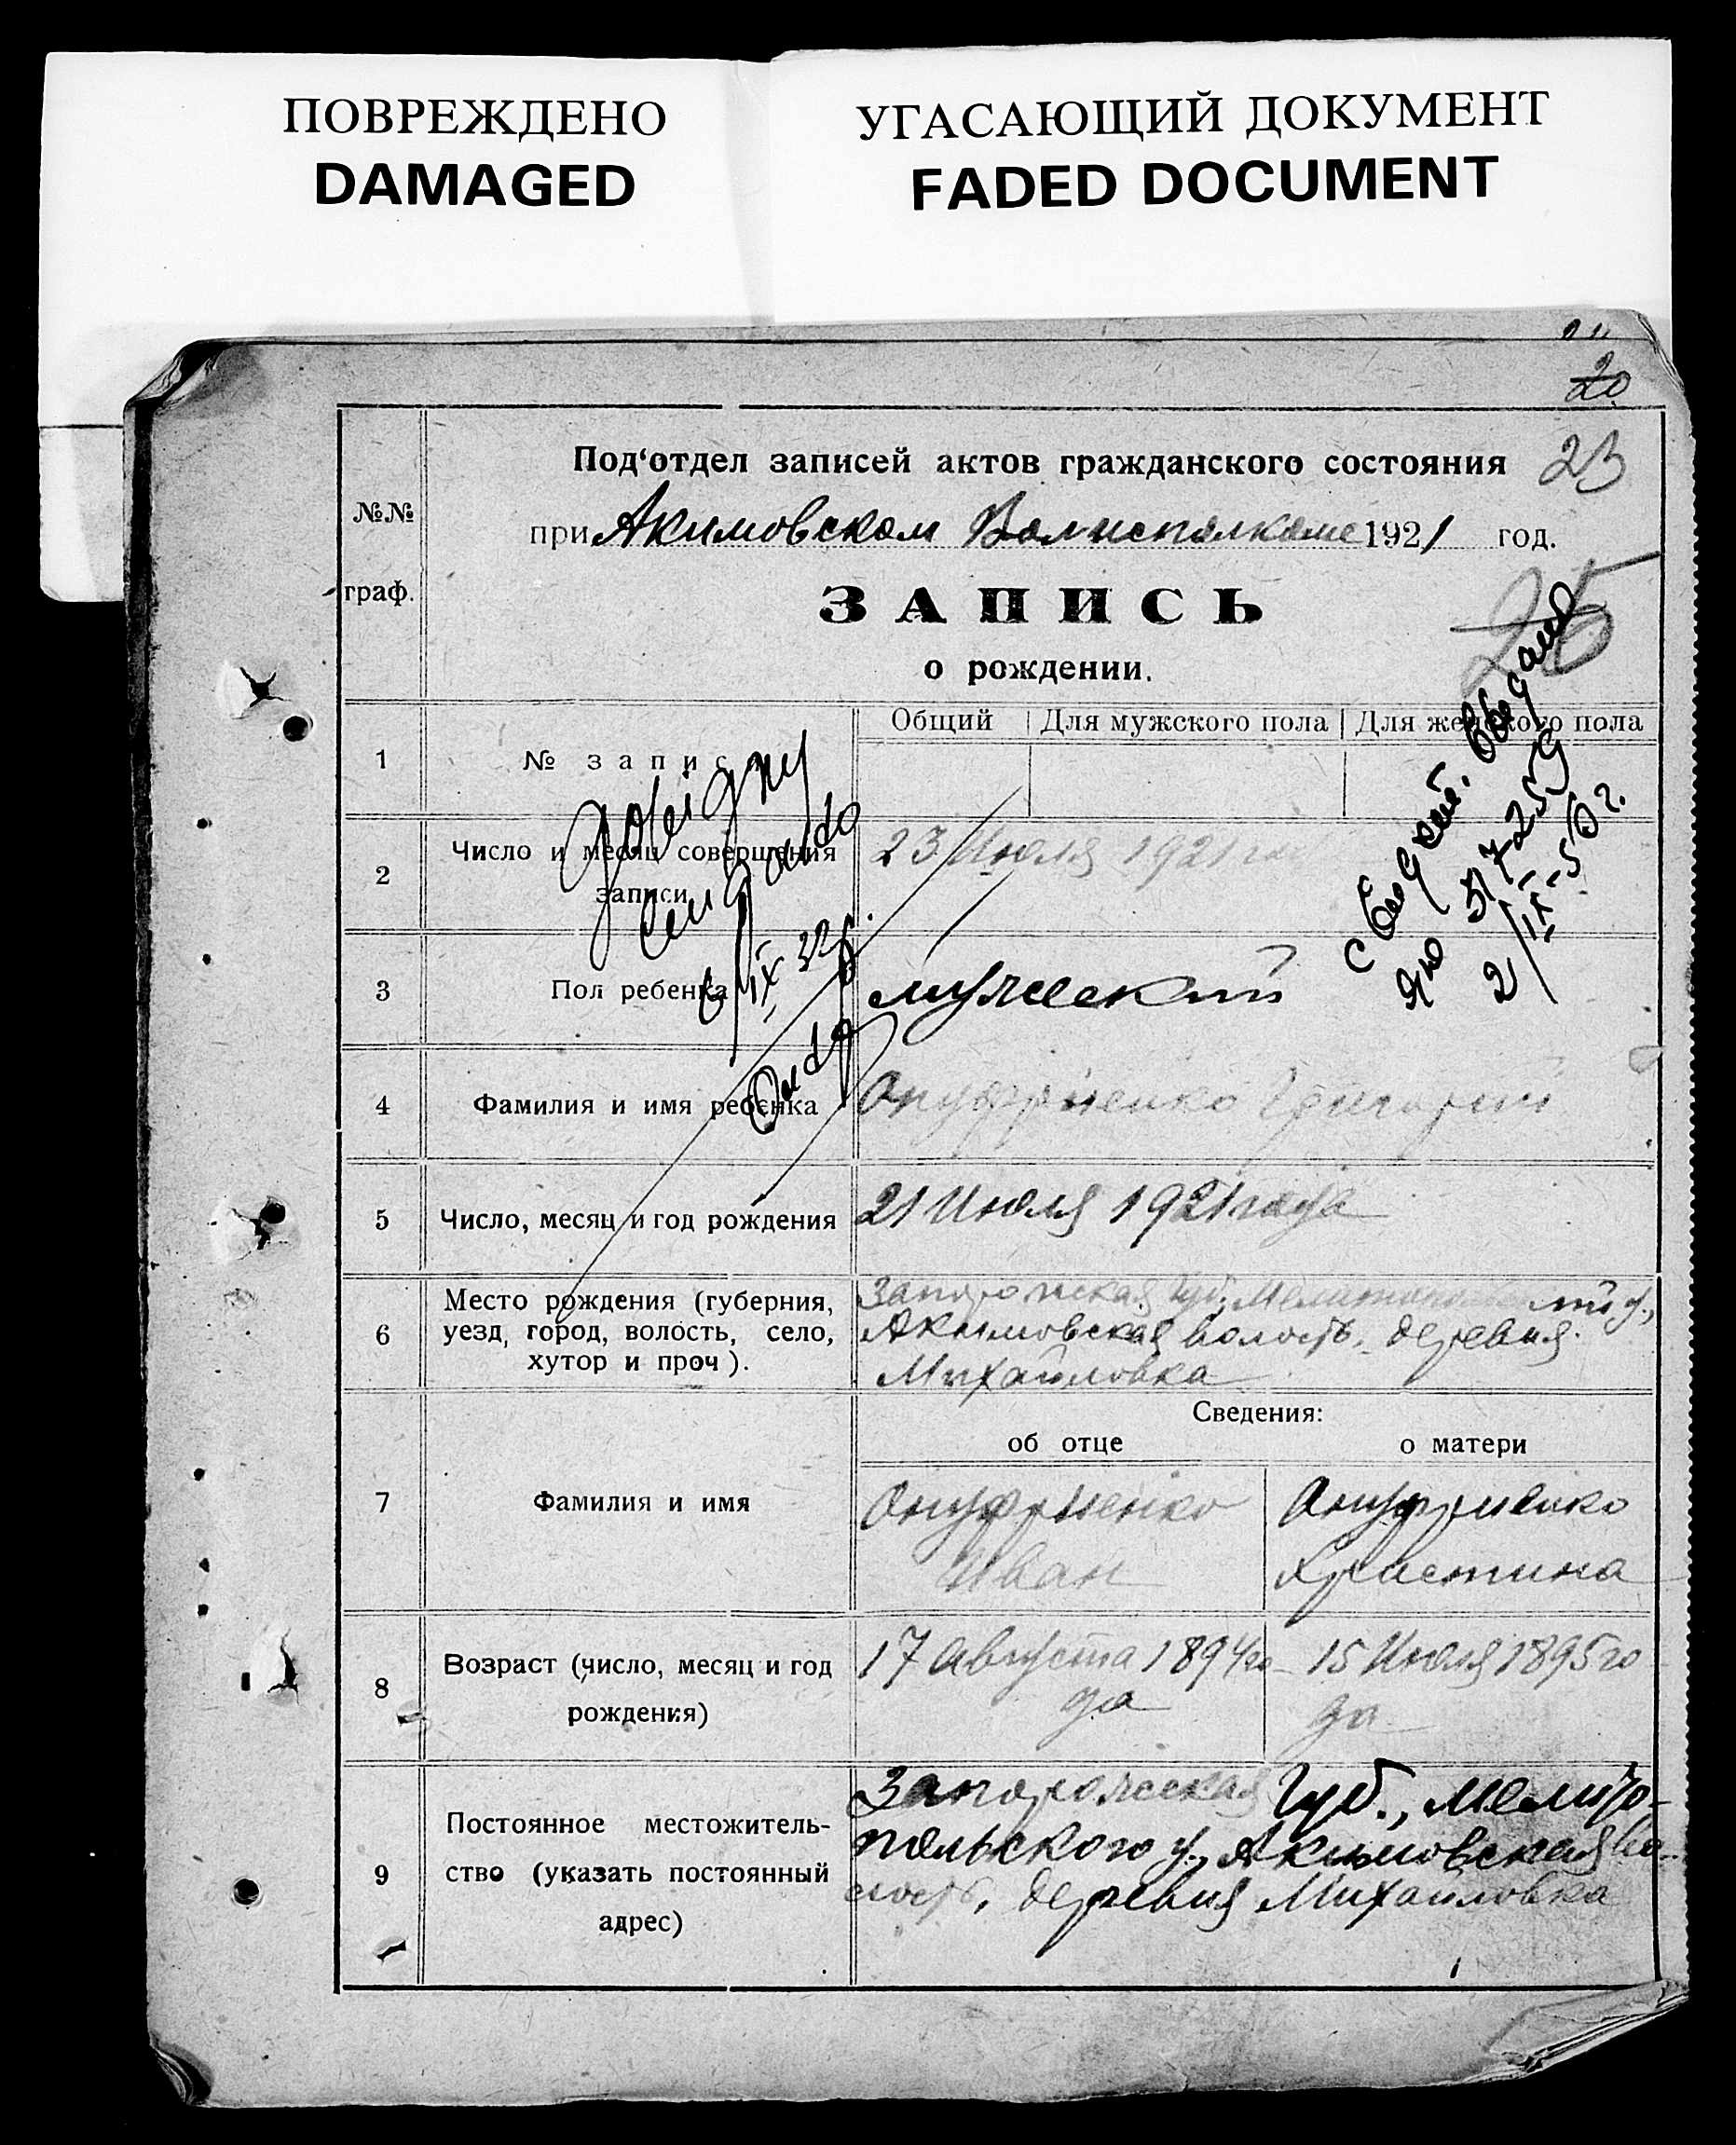 ПОВРЕЖДЕНО
DAMAGED
УГАСАЮЩИЙ ДОКУМЕНТ
FADED DOCUMENT
20
23
Под‘отдел записей актов гражданского состояния
при Акимовском Волисполкоме 1921 год.
№№
граф.
25
ЗАПИСЬ
о рождении.
Общий Для мужского пола Для женского пола
1 № записи
2 Число и месяц совершения записи
23 Июля 1921 го
3 Пол ребенка
мужеский
4 Фамилия и имя ребенка
Онуфриенко Григорий
5 Число, месяц и год рождения
21 Июля 1921 года
6 Место рождения (губерния,
уезд, город, волость, село,
хутор и проч).
Запорожская Губ., Мелитопольский у.,
Акимовская волость, деревня
Михайловка
Сведения:
об отце
о матери
7 Фамилия и имя
Онуфриенко
Иван
Онуфриенко
Христина
8 Возраст (число, месяц и год
рождения)
17 Августа 1894 го-
да
15 Июля 1895 го
да
9 Постоянное местожитель-
ство (указать постоянный
адрес)
Запорожская Губ., Мелито-
польского у., Акимовская во-
лость, деревня Михайловка
довідку
6/IX 32р.
свидет. выдано
2/IX-50г.